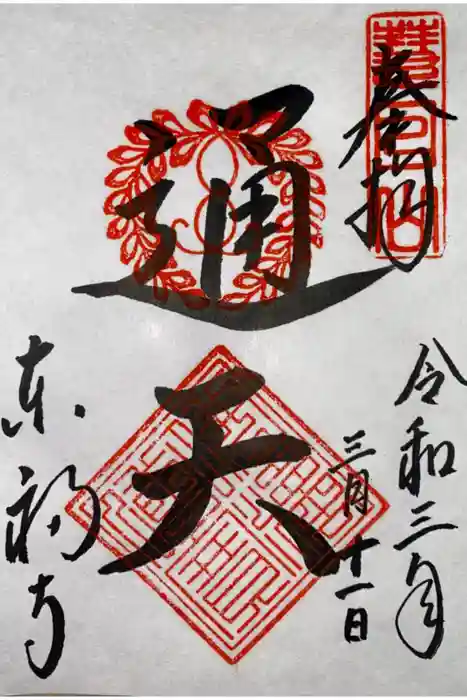 奉拝
慧日山
令和三年
三月十一日
通天
東福寺